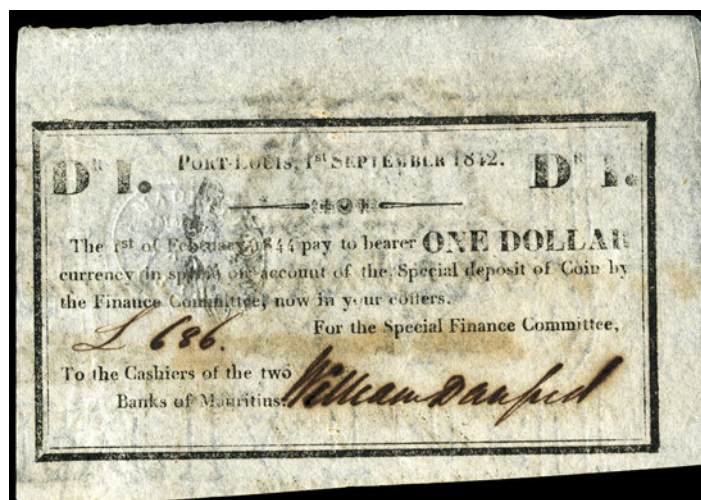 PORT-LOUIS, 1st SEPTEMBER 1842.
Dr 1. Dr 1.
The 1st of February 1844 pay to bearer ONE DOLLAR
currency in specie on account of the Special deposit of Coin by
the Finance Committee, now in your coffers.
L 686.
For the Special Finance Committee,
To the Cashiers of the two
Banks of Mauritius.
William